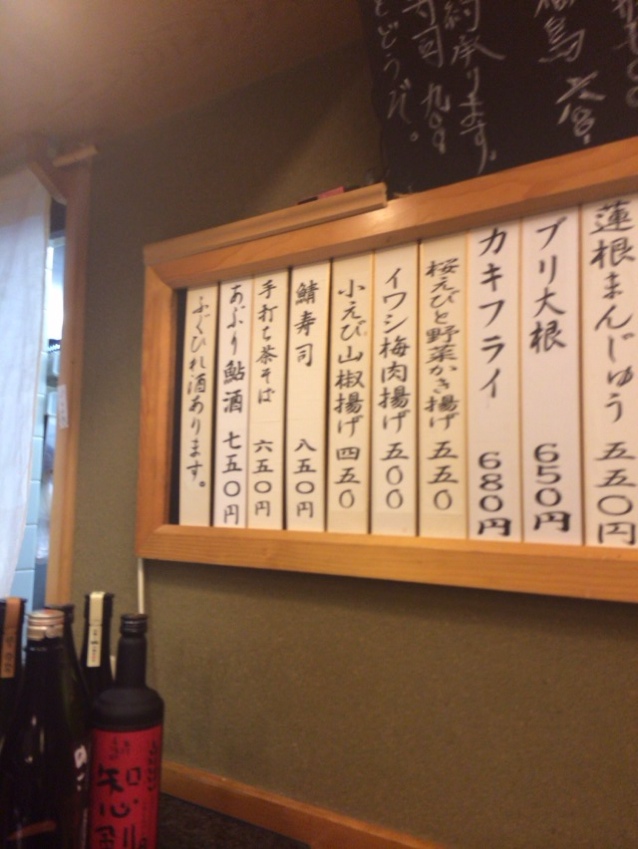 蓮根まんじゅう 五五〇円
ブリ大根 650円
カキフライ 680円
桜えびと野菜かき揚げ 五五〇
イワシ梅肉揚げ 五〇〇
小えび山椒揚げ 四五〇
鯖寿司 八五〇円
手打ち茶そば 六五〇円
あぶり鮎酒 七五〇円
ふぐひれ酒あります。
約承ります。
寿司 九〇〇
とどうぞ。
知心剣